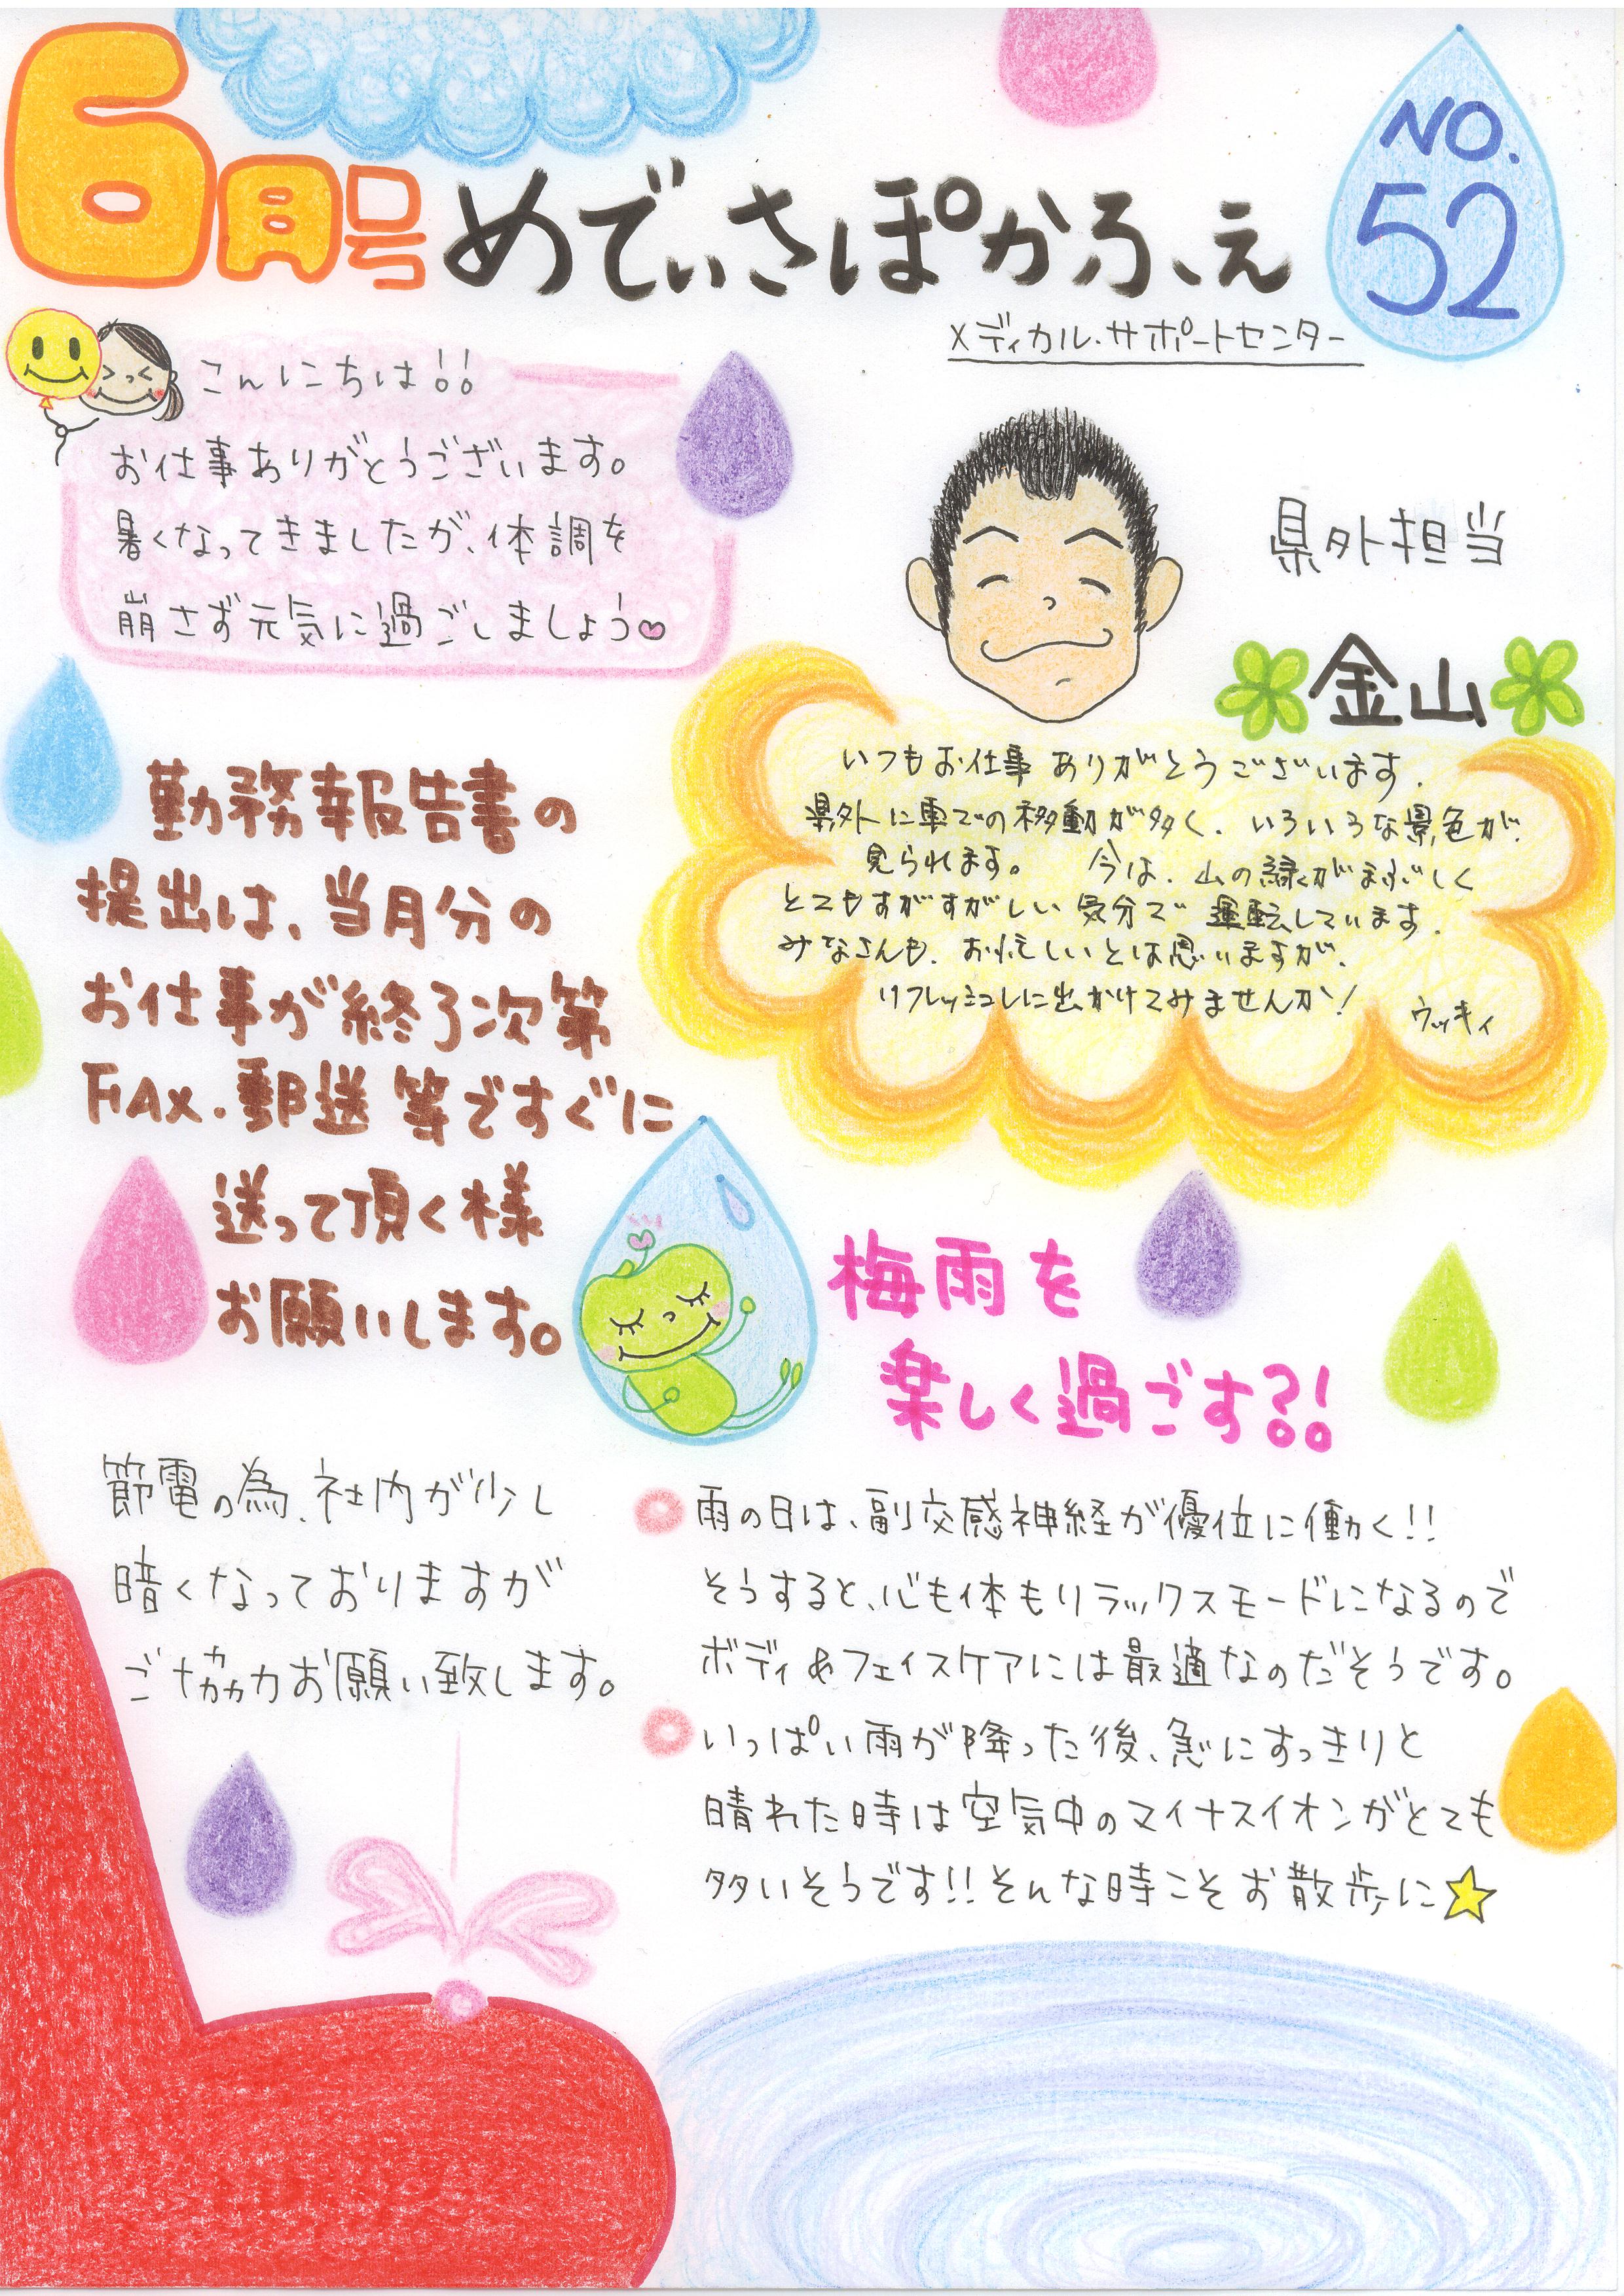 6月号
めでぃさぽかふぇ
NO.
52
メディカル・サポートセンター
こんにちは!!
お仕事ありがとうございます。
暑くなってきましたが、体調を
崩さず元気に過ごしましょう
県外担当
金山
いつもお仕事ありがとうございます.
県外に車での移動が多く、いろいろな景色が
見られます。 今は、山の緑がまぶしく
とてもすがすがしい気分で運転しています.
みなさんも、お忙しいとは思いますが、
リフレッシュしに出かけてみませんか!
ウッキィ
勤務報告書の
提出は、当月分の
お仕事が終了次第
FAX.郵送等ですぐに
送って頂く様
お願いします。
梅雨を
楽しく過ごす?!
節電の為、社内が少し
暗くなっておりますが
ご協力お願い致します。
雨の日は、副交感神経が優位に働く!!
そうすると、心も体もリラックスモードになるので
ボディ&フェイスケアには最適なのだそうです。
いっぱい雨が降った後、急にすっきりと
晴れた時は空気中のマイナスイオンがとても
多いそうです!!そんな時こそお散歩に